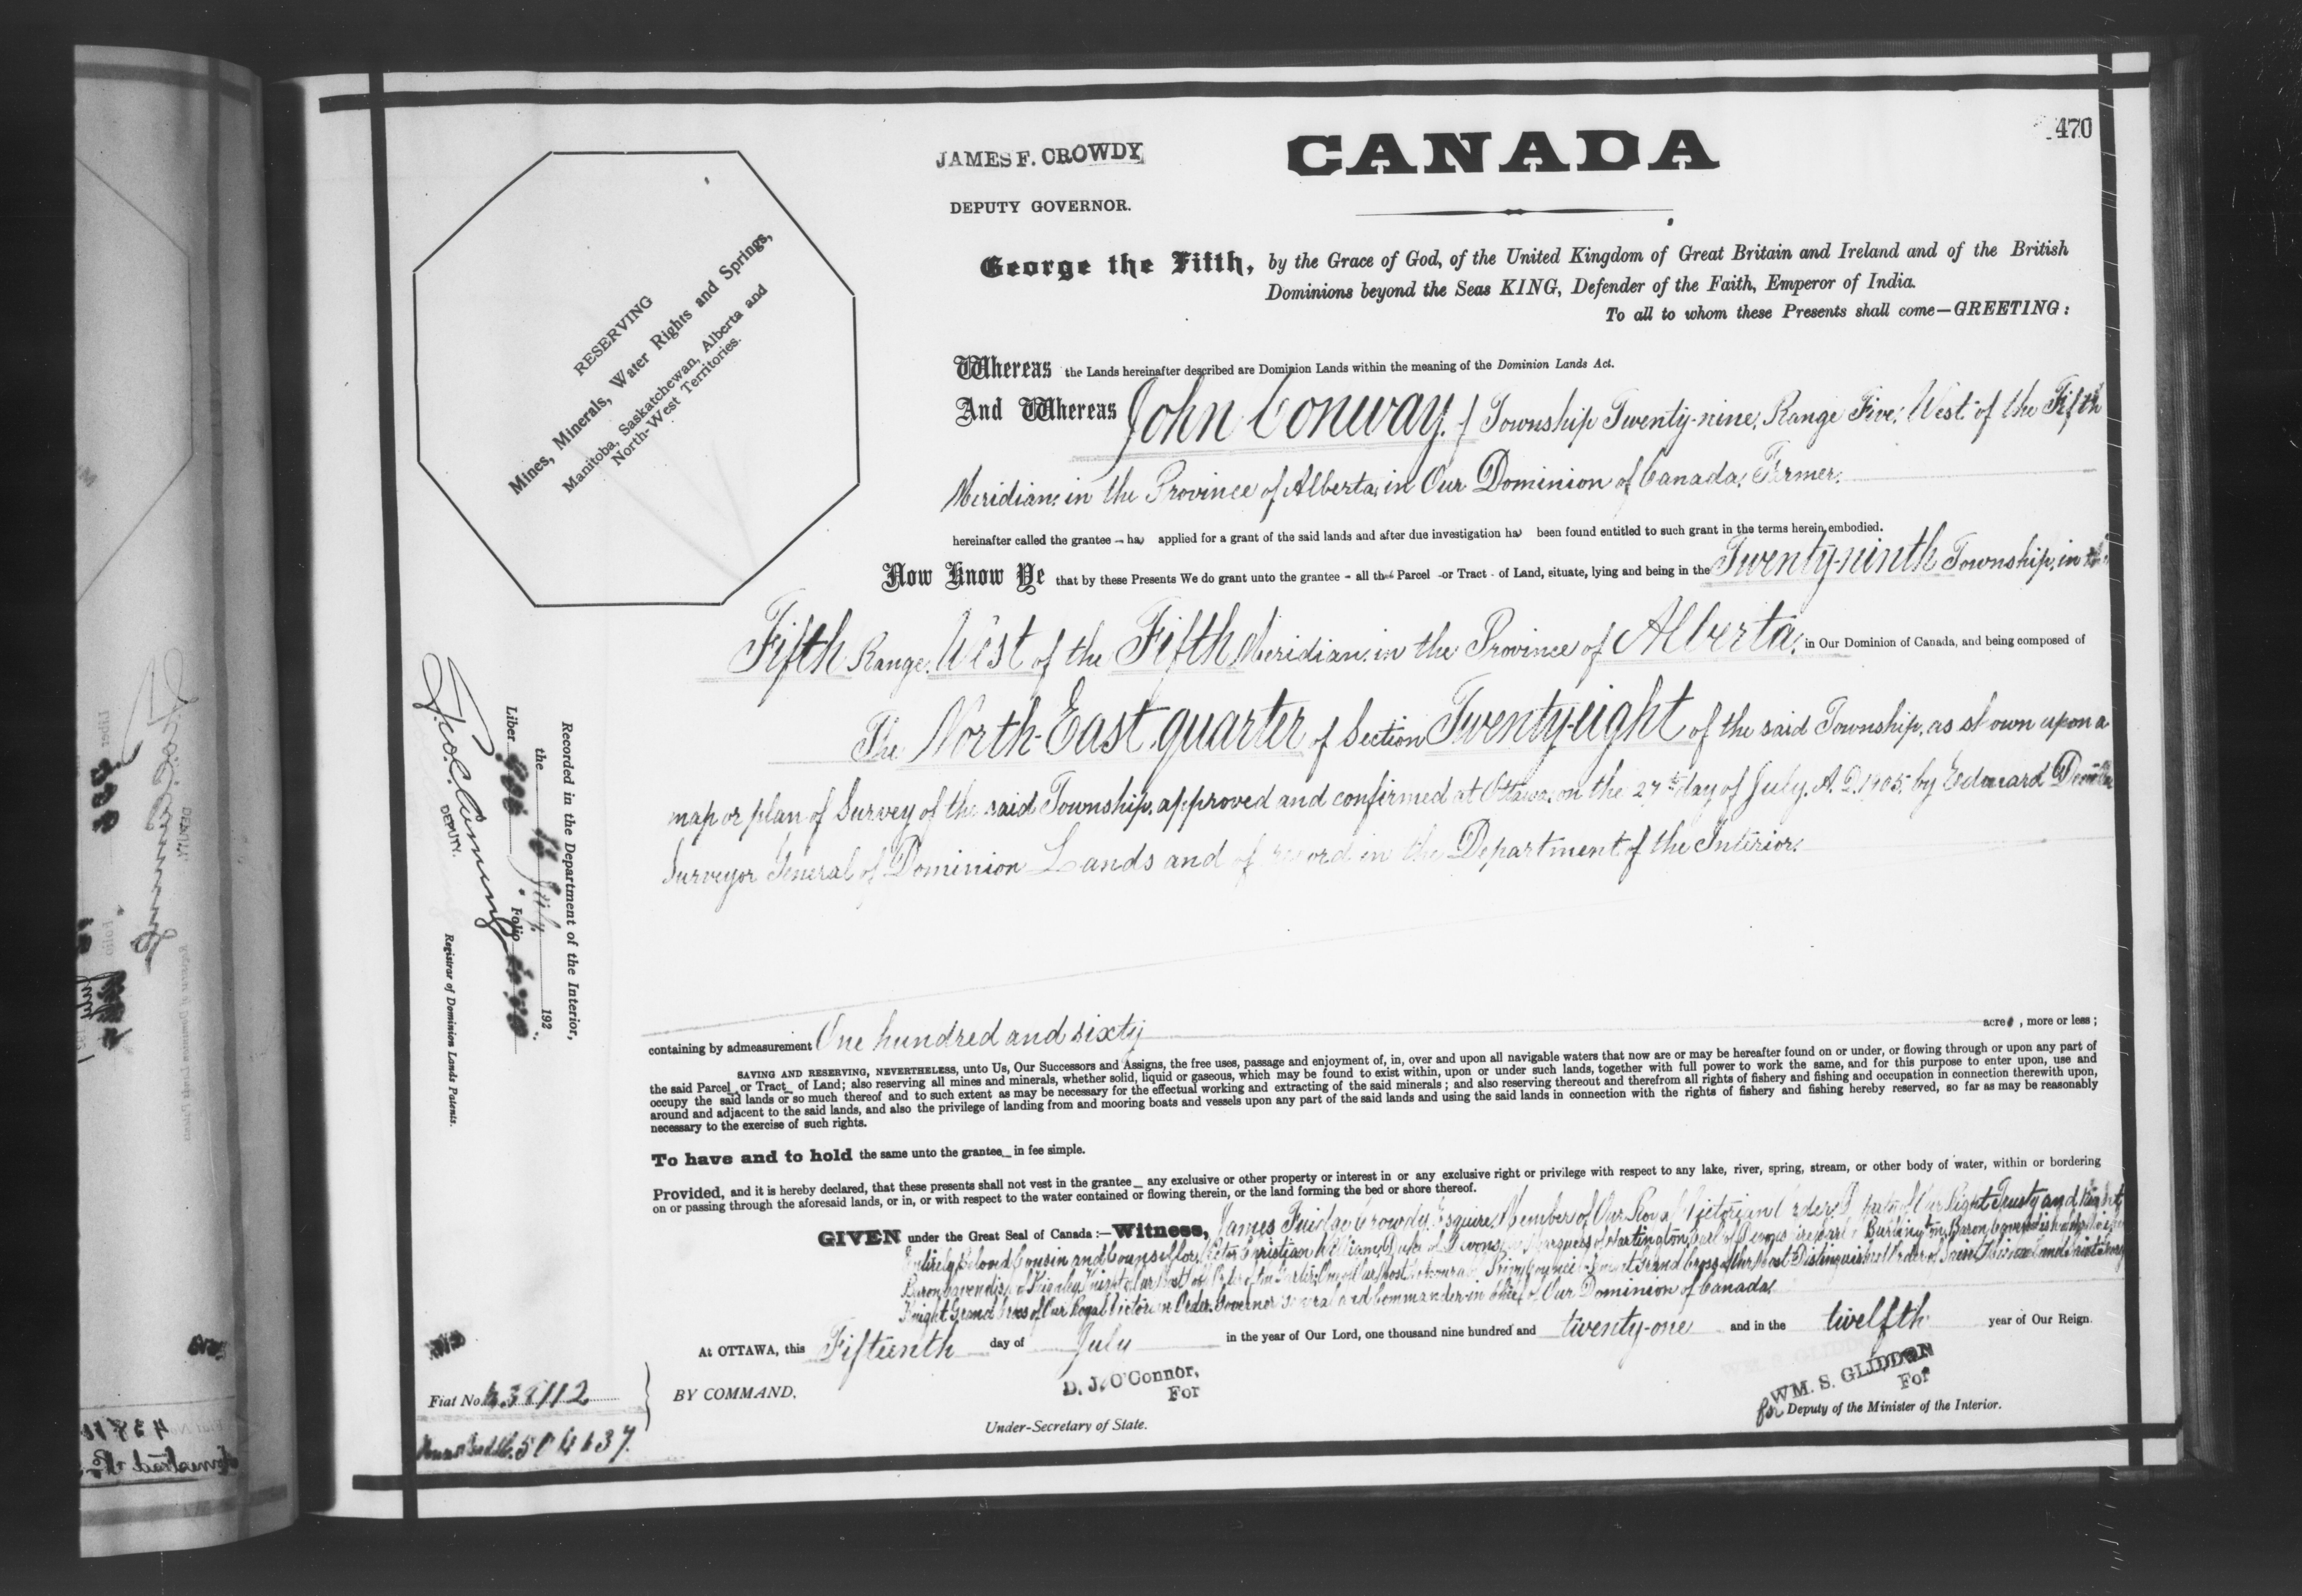 470
JAMES F. CROWDY
DEPUTY GOVERNOR.
CANADA
George the Fifth, by the Grace of God, of the United Kingdom of Great Britain and Ireland and of the British
Dominions beyond the Seas KING, Defender of the Faith, Emperor of India.
To all to whom these Presents shall come—GREETING:
RESERVING
Mines, Minerals, Water Rights and Springs,
Manitoba, Saskatchewan, Alberta and
North-West Territories.
Whereas the Lands hereinafter described are Dominion Lands within the meaning of the Dominion Lands Act.
And Whereas John Conway, of Township Twenty-nine, Range Five, West of the Fifth
Meridian, in the Province of Alberta, in Our Dominion of Canada, Farmer,
hereinafter called the grantee – has applied for a grant of the said lands and after due investigation has been found entitled to such grant in the terms herein embodied.
Now Know Ye that by these Presents We do grant unto the grantee – all that Parcel - or Tract - of Land, situate, lying and being in the Twenty-ninth Township, in the
Fifth Range, West of the Fifth Meridian, in the Province of Alberta, in Our Dominion of Canada, and being composed of
The North-East quarter of Section Twenty-eight of the said Township, as shown upon a
map or plan of Survey of the said Township, approved and confirmed at Ottawa, on the 27th day of July, A.D. 1905, by Edouard Deville
Surveyor General of Dominion Lands and of record in the Department of the Interior.
Recorded in the Department of the Interior,
the July 192
Liber Folio
Geo. C. Cuming
DEPUTY.
Registrar of Dominion Lands Patents.
containing by admeasurement One hundred and sixty acres, more or less;
SAVING AND RESERVING, NEVERTHELESS, unto Us, Our Successors and Assigns, the free uses, passage and enjoyment of, in, over and upon all navigable waters that now are or may be hereafter found on or under, or flowing through or upon any part of
the said Parcel_ or Tract_ of Land; also reserving all mines and minerals, whether solid, liquid or gaseous, which may be found to exist within, upon or under such lands, together with full power to work the same, and for this purpose to enter upon, use and
occupy the said lands or so much thereof and to such extent as may be necessary for the effectual working and extracting of the said minerals; and also reserving thereout and therefrom all rights of fishery and fishing and occupation in connection therewith upon,
around and adjacent to the said lands, and also the privilege of landing from and mooring boats and vessels upon any part of the said lands and using the said lands in connection with the rights of fishery and fishing hereby reserved, so far as may be reasonably
necessary to the exercise of such rights.
To have and to hold the same unto the grantee_ in fee simple.
Provided, and it is hereby declared, that these presents shall not vest in the grantee_ any exclusive or other property or interest in or any exclusive right or privilege with respect to any lake, river, spring, stream, or other body of water, within or bordering
on or passing through the aforesaid lands, or in, or with respect to the water contained or flowing therein, or the land forming the bed or shore thereof.
GIVEN under the Great Seal of Canada:—Witness, James Fuidge Crowdy, Esquire, Member of Our Royal Victorian Order, Deputy of Our Right Trusty and Right
Entirely Beloved Cousin and Counsellor, Victor Christian William, Duke of Devonshire, Marquess of Hartington, Earl of Devonshire, Earl of Burlington, Baron Cavendish of Hardwicke,
Baron Cavendish of Keighley, Knight of Our Most Noble Order of the Garter, One of Our Most Honourable Privy Council, Knight Grand Cross of Our Most Distinguished Order of Saint Michael and Saint George,
Knight Grand Cross of Our Royal Victorian Order, Governor General and Commander-in-Chief of Our Dominion of Canada.
At OTTAWA, this Fifteenth day of July in the year of Our Lord, one thousand nine hundred and twenty-one and in the twelfth year of Our Reign.
BY COMMAND,
D. J. O'Connor,
For
Under-Secretary of State.
WM. S. GLIDDON
For
for Deputy of the Minister of the Interior.
Fiat No. 438112